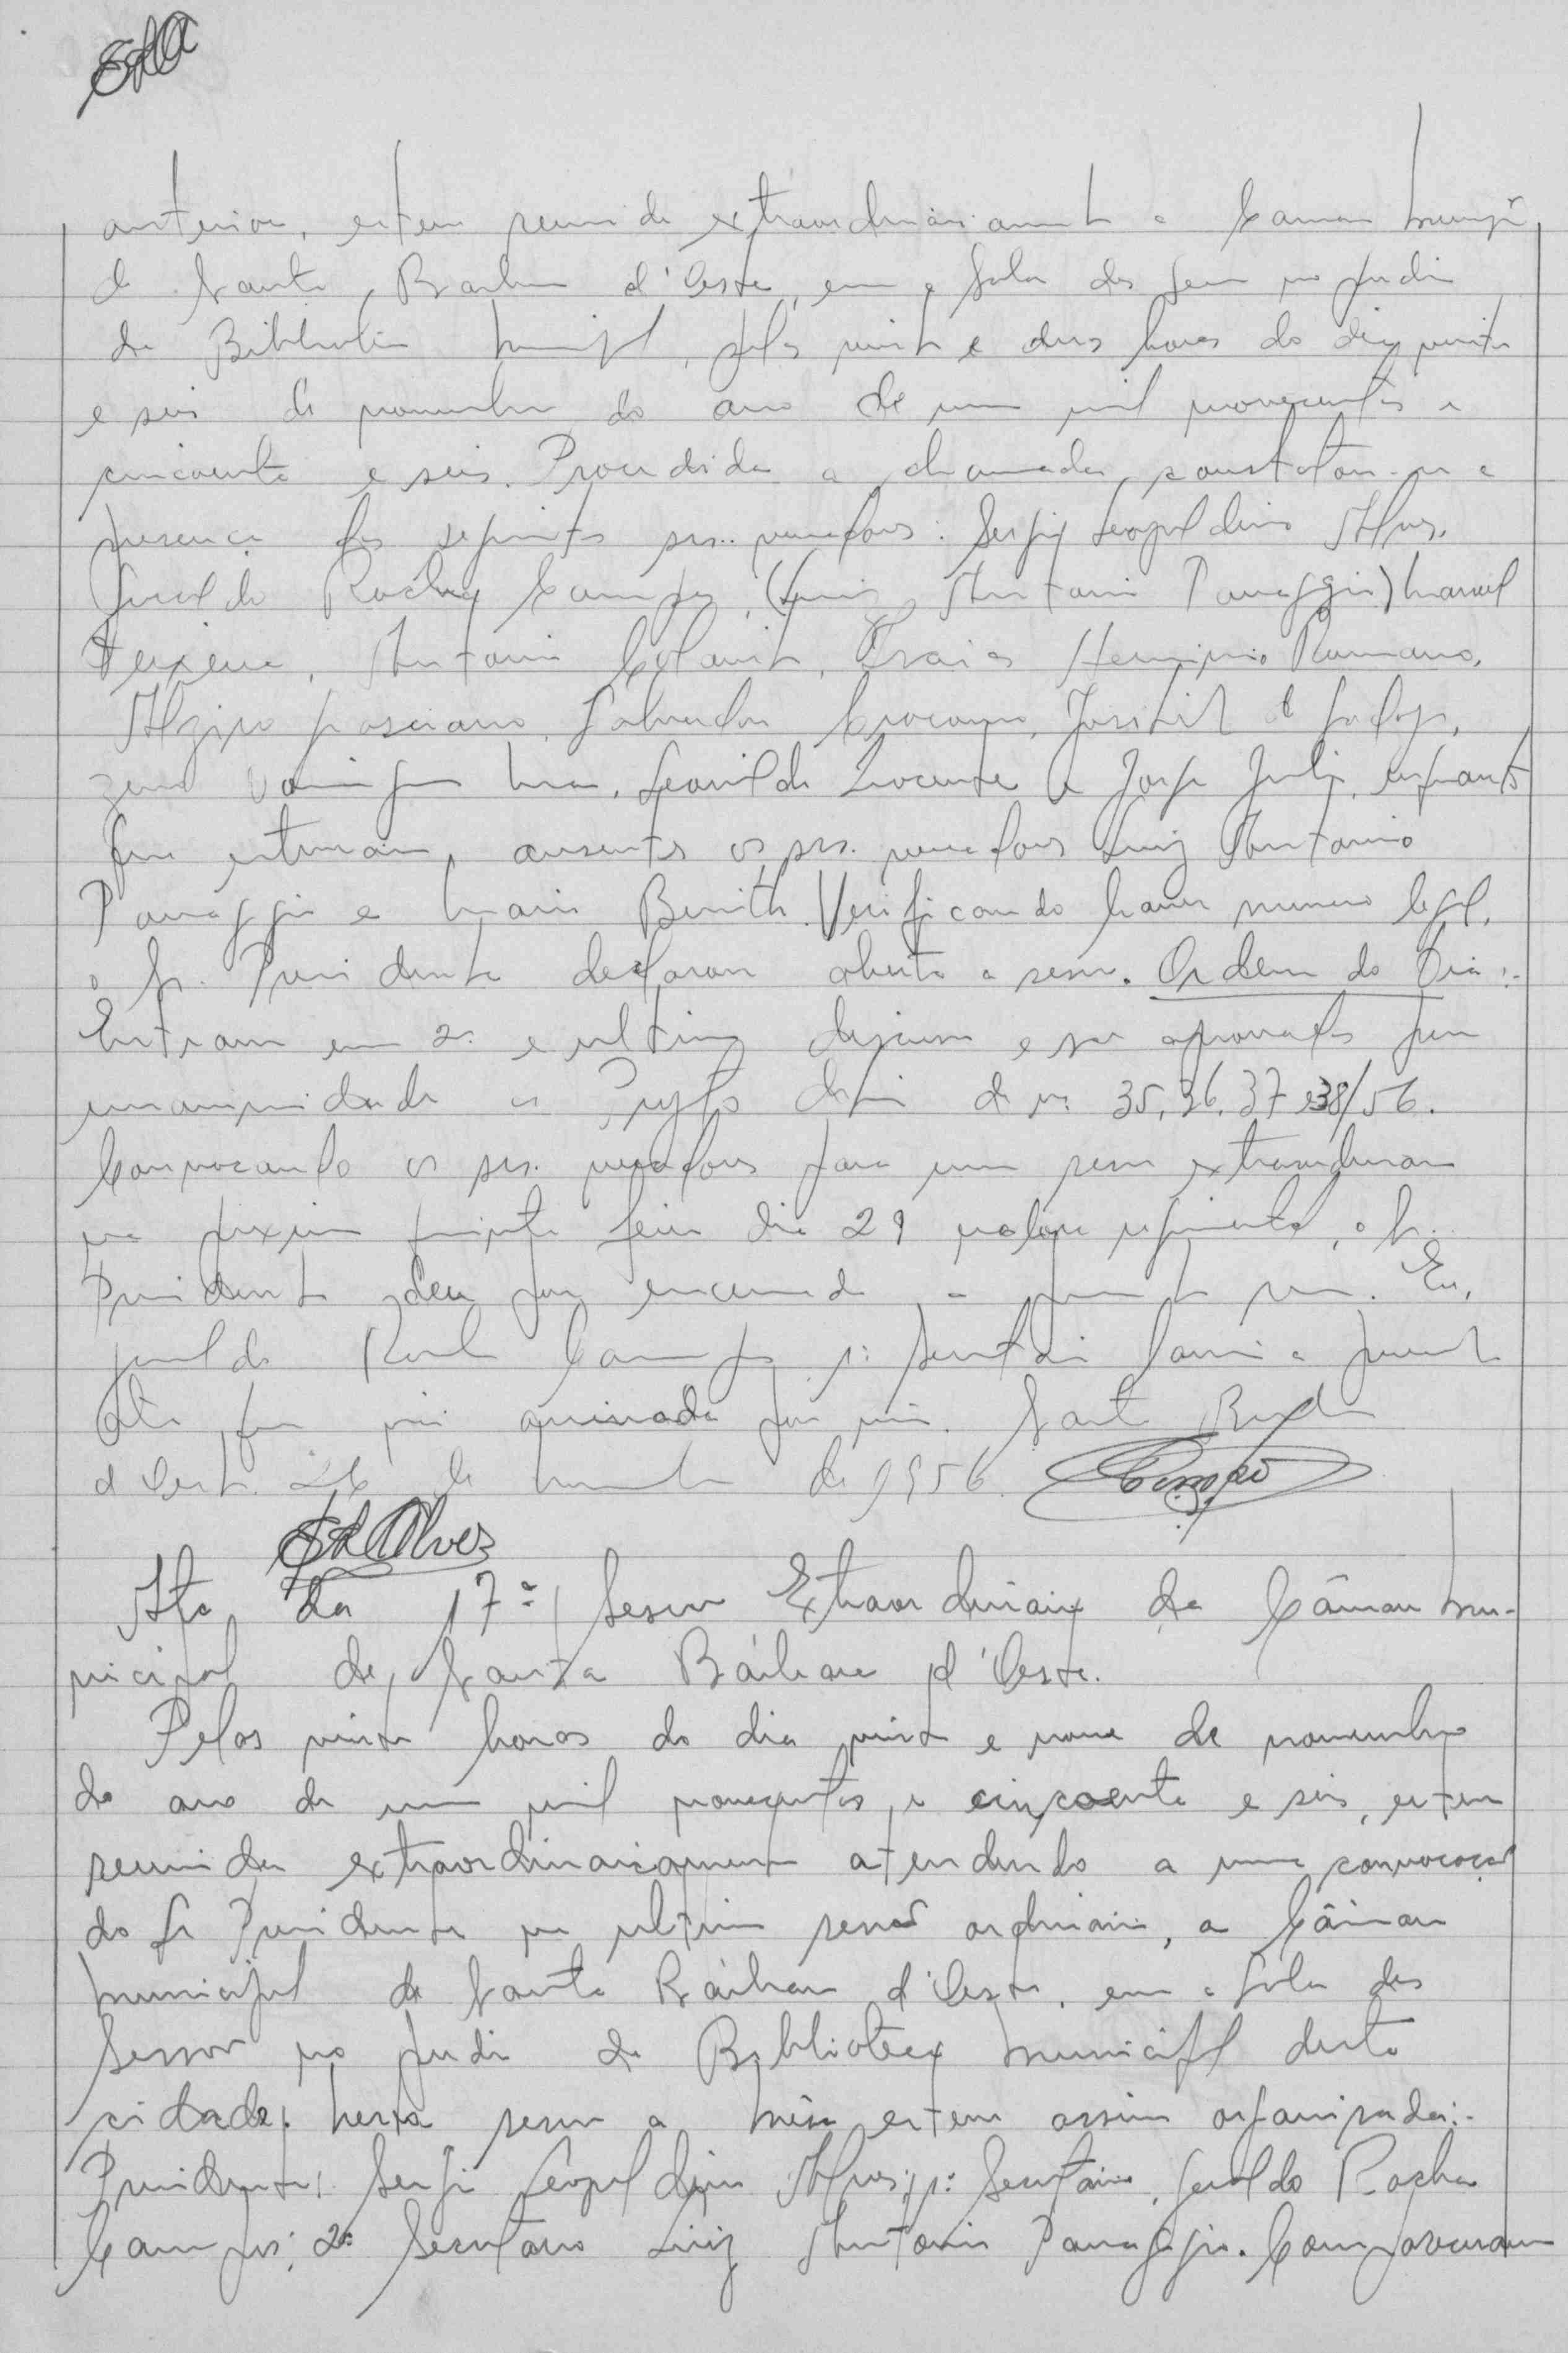 SLA
anterior, esteve reunida extraordinariamente a Camara Munipl
de Santa Barbara d'Oeste, em a sala das sessões no predio
da Biblioteca Municipal, pelas vinte e duas horas do dia vinte
e seis de novembro do ano de um mil novecentos e
cincoenta e seis. Procedida a chamada, constatou-se a
presença dos seguintes srs. vereadores: Sergio Leopoldino Alves,
Geraldo Rocha Campos, (Luiz Antonio Panaggio) Manoel
Teixeira, Antonio, Isaias Herminio Romano,
Alziro Ponciano, Salvador, de Godoy,
Zeno Maia, Leonildo e Jorge, enquanto
que estiveram ausentes os srs. vereadores Luiz Antonio
Panaggio e Mario. Verificando haver numero legal,
o Sr. Presidente declarou aberta a sessão. Ordem do Dia:-
Entraram em 2ª e ultima discussão e são aprovados por
unanimidade os Projetos de Lei de nº 35, 36, 37 e 38/56.
Convocando os srs. vereadores para uma sessão extraordinaria
na proxima quinta feira dia 29 regimental, o Sr.
Presidente deu por encerrada a presente sessão. Eu,
Geraldo Rocha Campos 1º Secretario lavrei a presente
ata que vai assinada por mim. Santa Barbara
d'Oeste, 26 de novembro de 1956. Campos
SLAlves
Ata da 17ª Sessão Extraordinaria da Câmara Mu-
nicipal de Santa Bárbara d'Oeste.
Pelas vinte horas do dia vinte e nove de novembro
do ano de um mil novecentos e cincoenta e seis, esteve
reunida extraordinariamente atendendo a uma convocação
do Sr Presidente na ultima sessão ordinaria, a Câmara
Municipal de Santa Bárbara d'Oeste, em a sala das
Sessões no predio da Biblioteca Municipal desta
cidade. Nesta sessão a mêsa esteve assim organizada:-
Presidente: Sergio Leopoldino Alves; 1º Secretario, Geraldo Rocha
Campos; 2º Secretario Luiz Antonio Panaggio. Compareceram